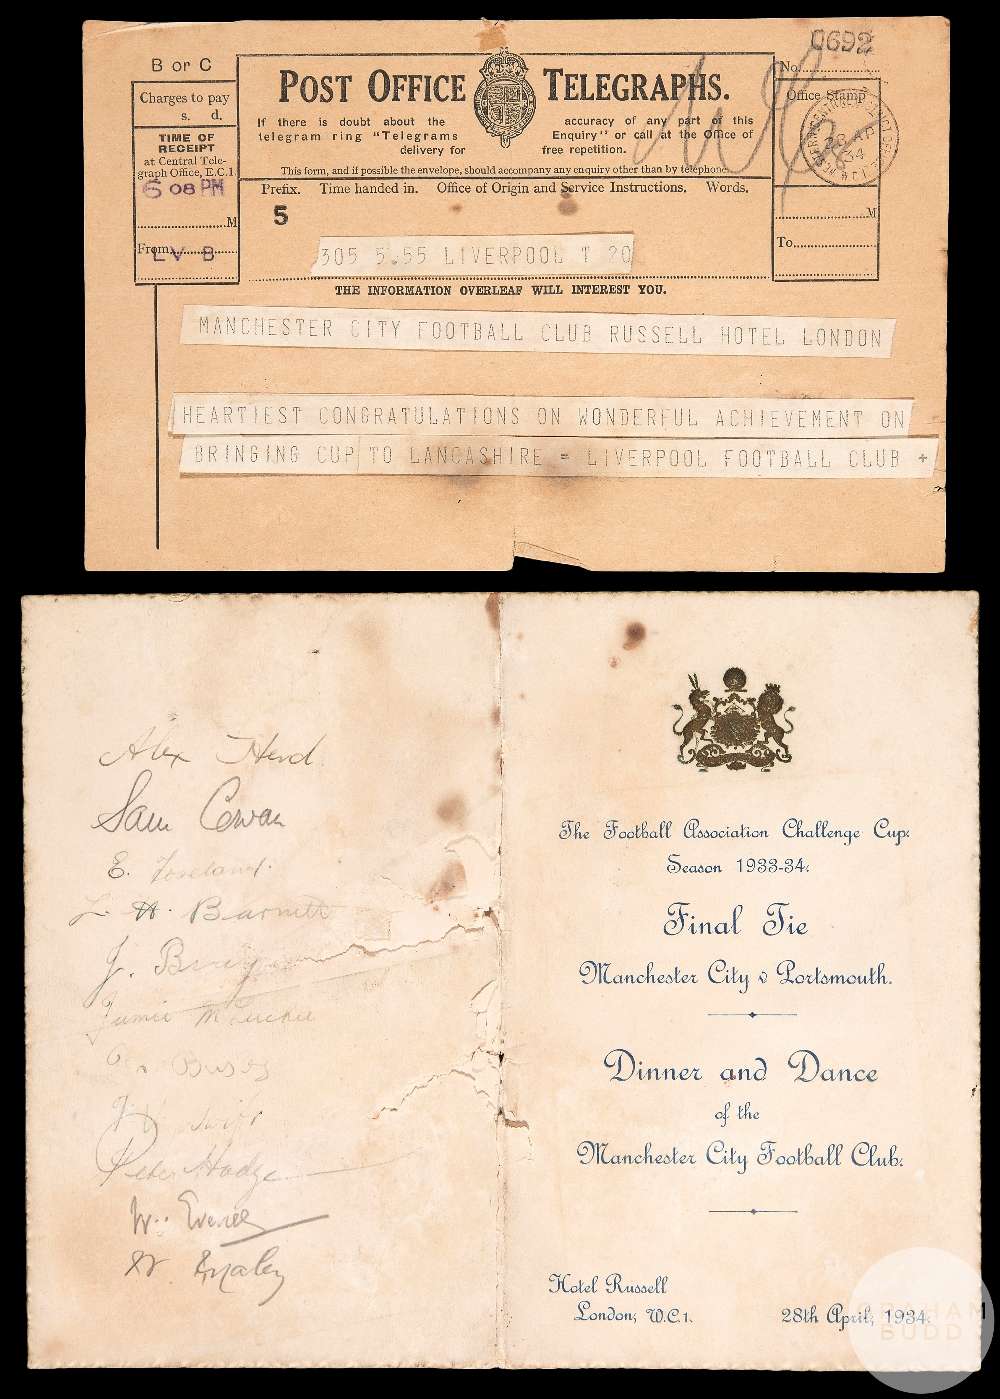 B or C
Charges to pay
s. d.
TIME OF
RECEIPT
at Central Tele-
graph Office, E.C.1.
6 08 PM
M
From
LV B
POST OFFICE TELEGRAPHS.
If there is doubt about the accuracy of any part of this
telegram ring "Telegrams Enquiry" or call at the Office of
delivery for free repetition.
This form, and if possible the envelope, should accompany any enquiry other than by telephone.
Prefix. Time handed in. Office of Origin and Service Instructions. Words.
5
0692
No.
Office Stamp
28 AP
34
M
To
305 5.55 LIVERPOOL T 20
THE INFORMATION OVERLEAF WILL INTEREST YOU.
MANCHESTER CITY FOOTBALL CLUB RUSSELL HOTEL LONDON
HEARTIEST CONGRATULATIONS ON WONDERFUL ACHIEVEMENT ON
BRINGING CUP TO LANCASHIRE = LIVERPOOL FOOTBALL CLUB +
Alex Herd
Sam Cowan
E. Toseland.
L. H. Barnett
J. Bray
Jamie McLuckie
Busby
F. Swift
Peter Hodge
The Football Association Challenge Cup.
Season 1933-34.
Final Tie
Manchester City v Portsmouth.
Dinner and Dance
of the
Manchester City Football Club.
Hotel Russell
London, W.C.1.
28th April, 1934.
BUDD